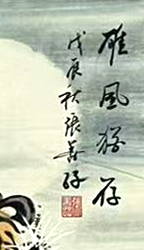 雄風猶存
戊辰秋張善孖